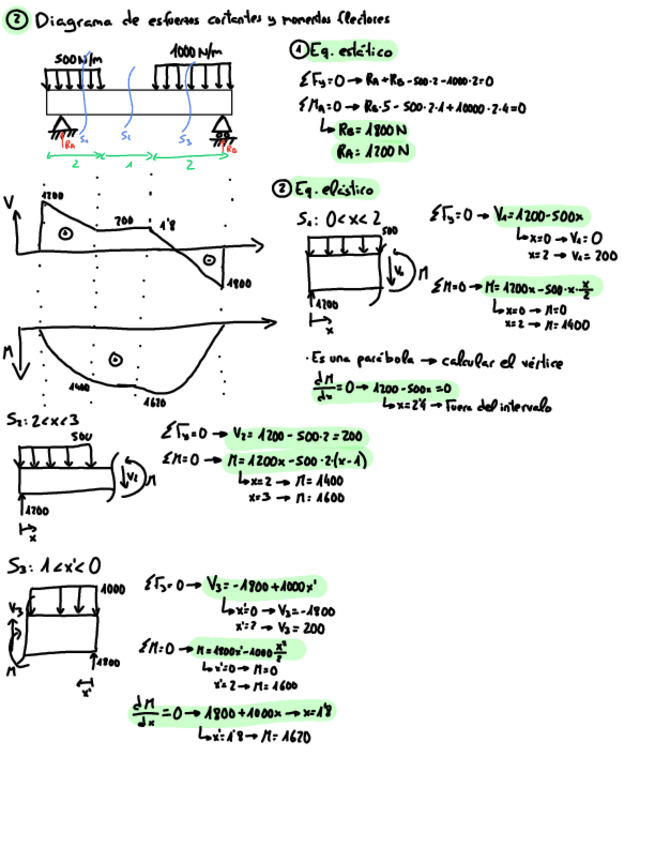 ② Diagrama de esfuerzos cortantes y momentos flectores
500 N/m
1000 N/m
RA
S1
S2
S3
RB
2
1
2
① Eq. estático
ΣFy=0 → RA+RB-500·2-1000·2=0
ΣMA=0 → RB·5-500·2·1+10000·2·4=0
↳ RB=1800 N
RA=1200 N
V
1200
200
1'8
1800
M
1400
1620
② Eq. elástico
S1: 0<x<2
500
V1
M
1200
x
ΣFy=0 → V1=1200-500x
↳ x=0 → V1=0
x=2 → V1=200
ΣM=0 → M=1200x-500·x·x/2
↳ x=0 → M=0
x=2 → M=1400
· Es una parábola → calcular el vértice
dM/dx=0 → 1200-500x=0
↳ x=2'4 → Fuera del intervalo
S2: 2<x<3
500
V2
M
1200
x
ΣFy=0 → V2=1200-500·2=200
ΣM=0 → M=1200x-500·2·(x-1)
↳ x=2 → M=1400
x=3 → M=1600
S3: 1<x'<0
1000
V3
M
1800
x'
ΣFy=0 → V3=-1800+1000x'
↳ x'=0 → V3=-1800
x'=2 → V3=200
ΣM=0 → M=1800x'-1000x²/2
↳ x'=0 → M=0
x'=2 → M=1600
dM/dx=0 → 1800+1000x → x=1'8
↳ x'=1'8 → M=1620